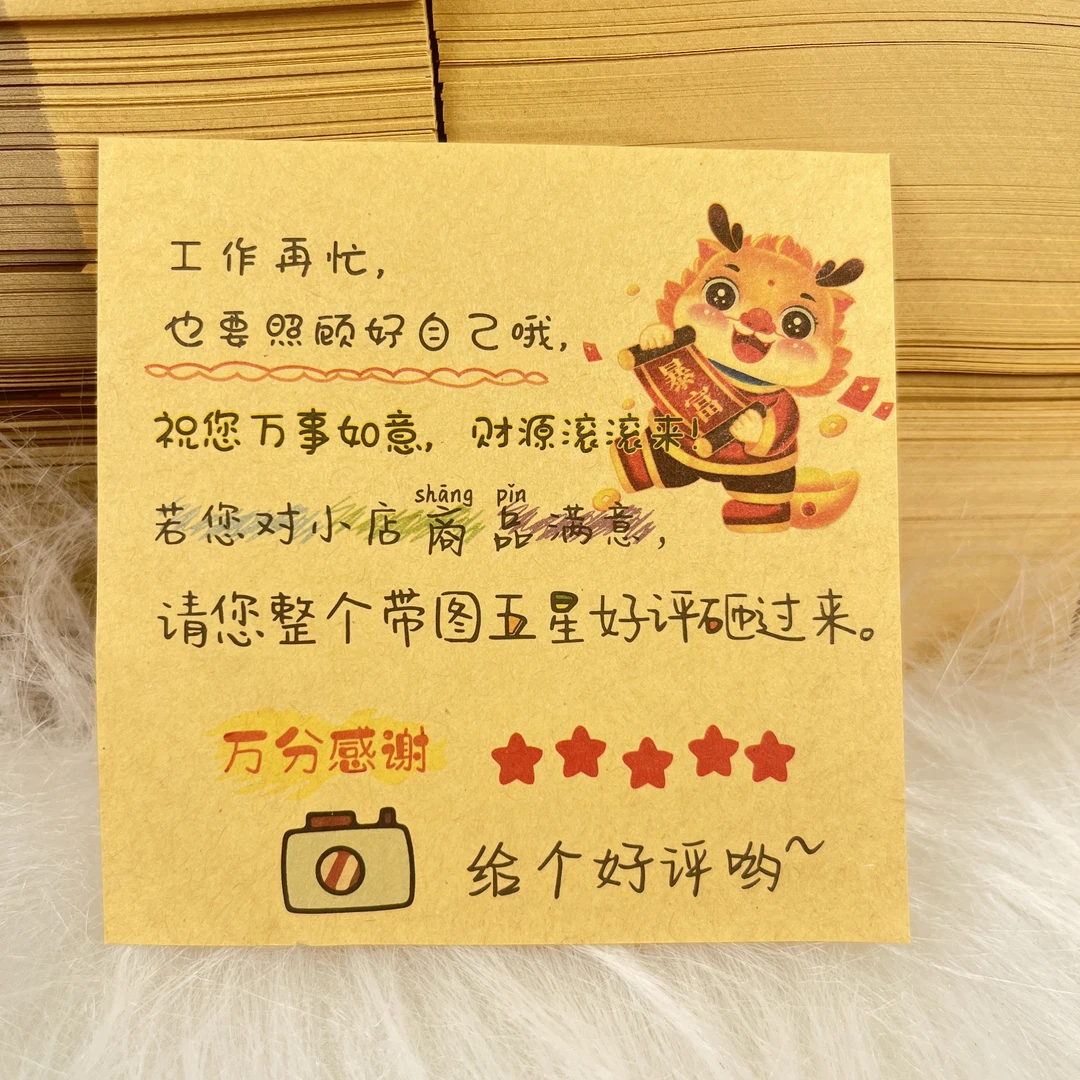 工作再忙，
也要照顾好自己哦，
暴富
祝您万事如意，财源滚滚来！
shāng pǐn
若您对小店商品满意，
请您整个带图五星好评砸过来。
万分感谢
给个好评哟~